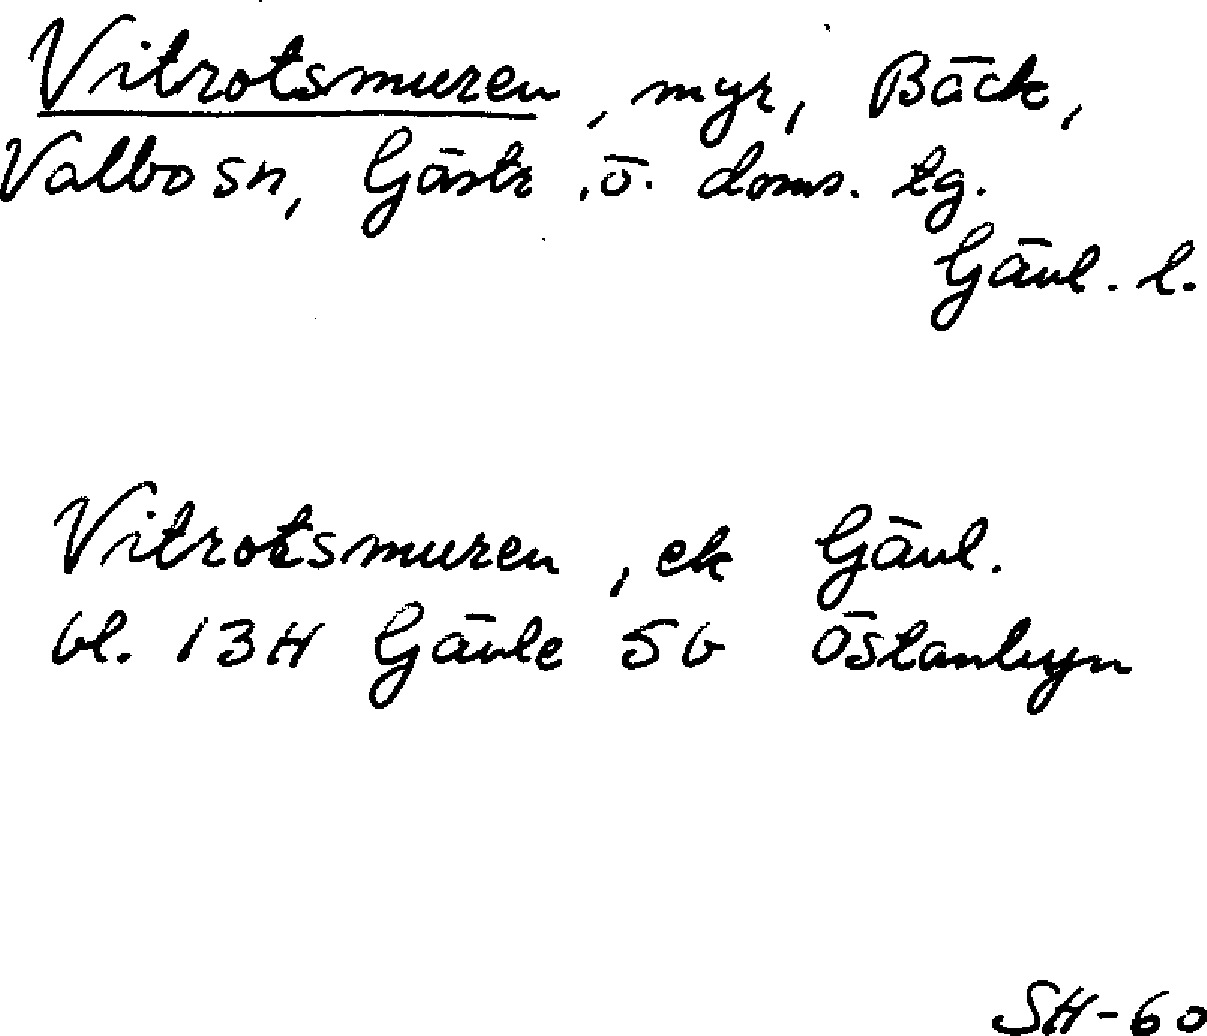 Vitrotsmuren, myr, Bäck,
Valbo sn, Gästr. ö. doms. tg.
Gävl. l.
Vitrotsmuren, ek Gävl.
bl. 13H Gävle 5b Östanbyn
SH-60